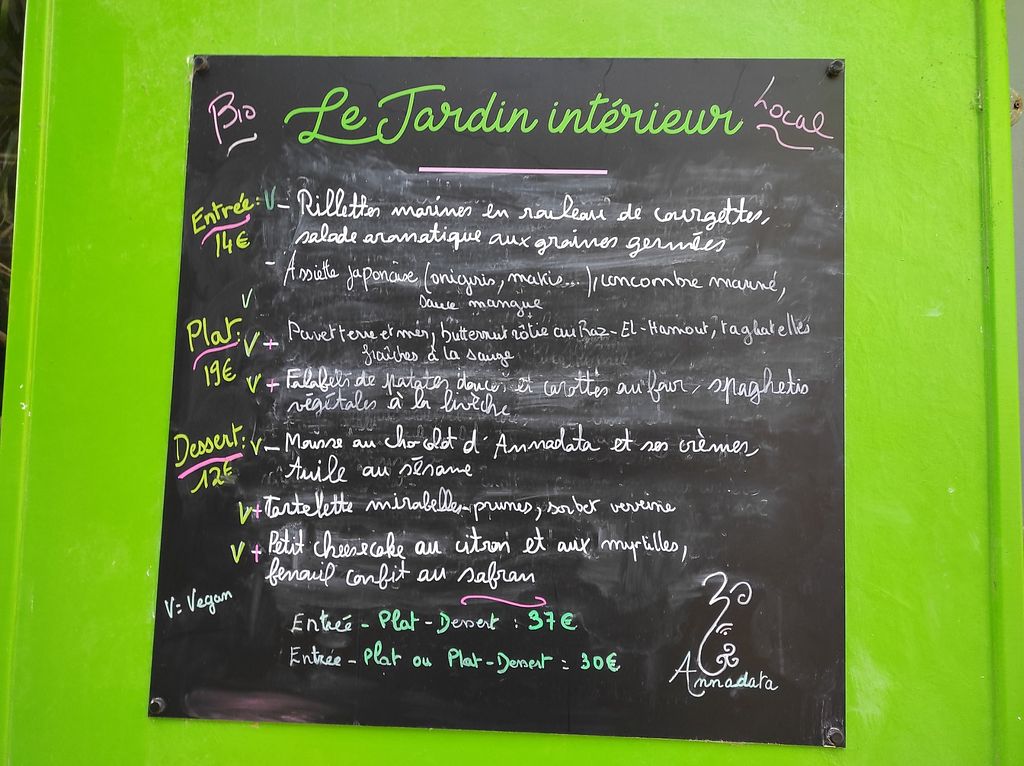 Bio Le Jardin intérieur Local
Entrée: V - Rillettes marines en rouleau de courgettes,
14€ salade aromatique aux graines germées
- Assiette japonaise (oniguris, makis...), concombre mariné,
V sauce mangue
Plat: V + Pavet terre et mer, butternut rôtie au Raz-El-Hanout, tagliatelles
fraîches à la sauge
19€ V + Falafels de patates douces et carottes au four, spaghetis
végétales à la livèche
Dessert: V - Mousse au chocolat d'Annadata et ses crèmes,
12€ tuile au sésame
V + Tartelette mirabelles-prunes, sorbet verveine
V + Petit cheesecake au citron et aux myrtilles,
fenouil confit au safran
V = Vegan
Entrée - Plat - Dessert : 37€
Entrée - Plat ou Plat - Dessert = 30€
Annadata